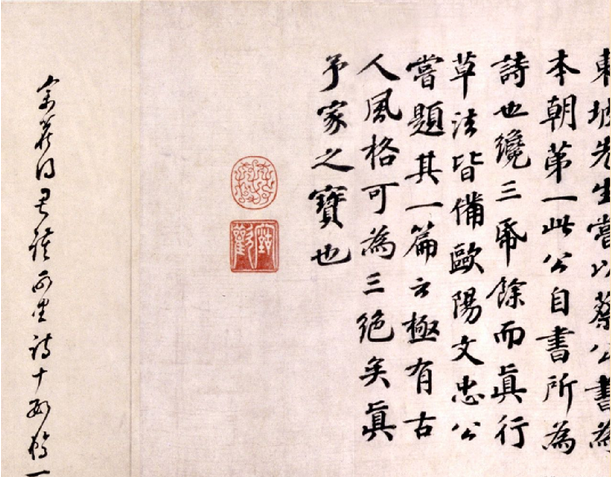 東坡先生嘗以蔡公書為
本朝第一此公自書所為
詩也纔三帋餘而真行
草法皆備歐陽文忠公
嘗題其一篇云極有古
人風格可為三絕矣真
予家之寶也
詩十